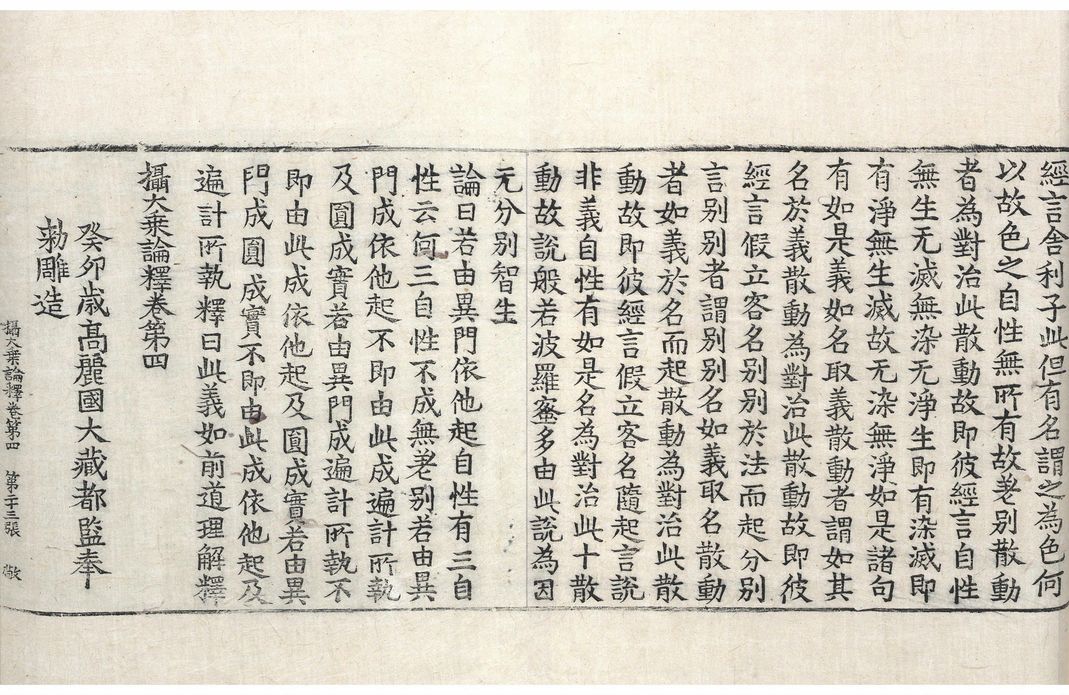 經言舍利子此但有名謂之為色何
以故色之自性無所有故差別散動
者為對治此散動故即彼經言自性
無生无滅無染无淨生即有染滅即
有淨無生滅故无染無淨如是諸句
有如是義如名取義散動者謂如其
名於義散動為對治此散動故即彼
經言假立客名別別於法而起分別
言別別者謂別別名如義取名散動
者如義於名而起散動為對治此散
動故即彼經言假立客名隨起言說
非義自性有如是名為對治此十散
動故說般若波羅蜜多由此說為因
无分別智生
論曰若由異門依他起自性有三自
性云何三自性不成無差別若由異
門成依他起不即由此成遍計所執
及圓成實若由異門成遍計所執不
即由此成依他起及圓成實若由異
門成圓成實不即由此成依他起及
遍計所執釋曰此義如前道理解釋
攝大乘論釋卷第四
癸卯歲高麗國大藏都監奉
勅雕造
攝大乘論釋卷第四 第二十三張 敬